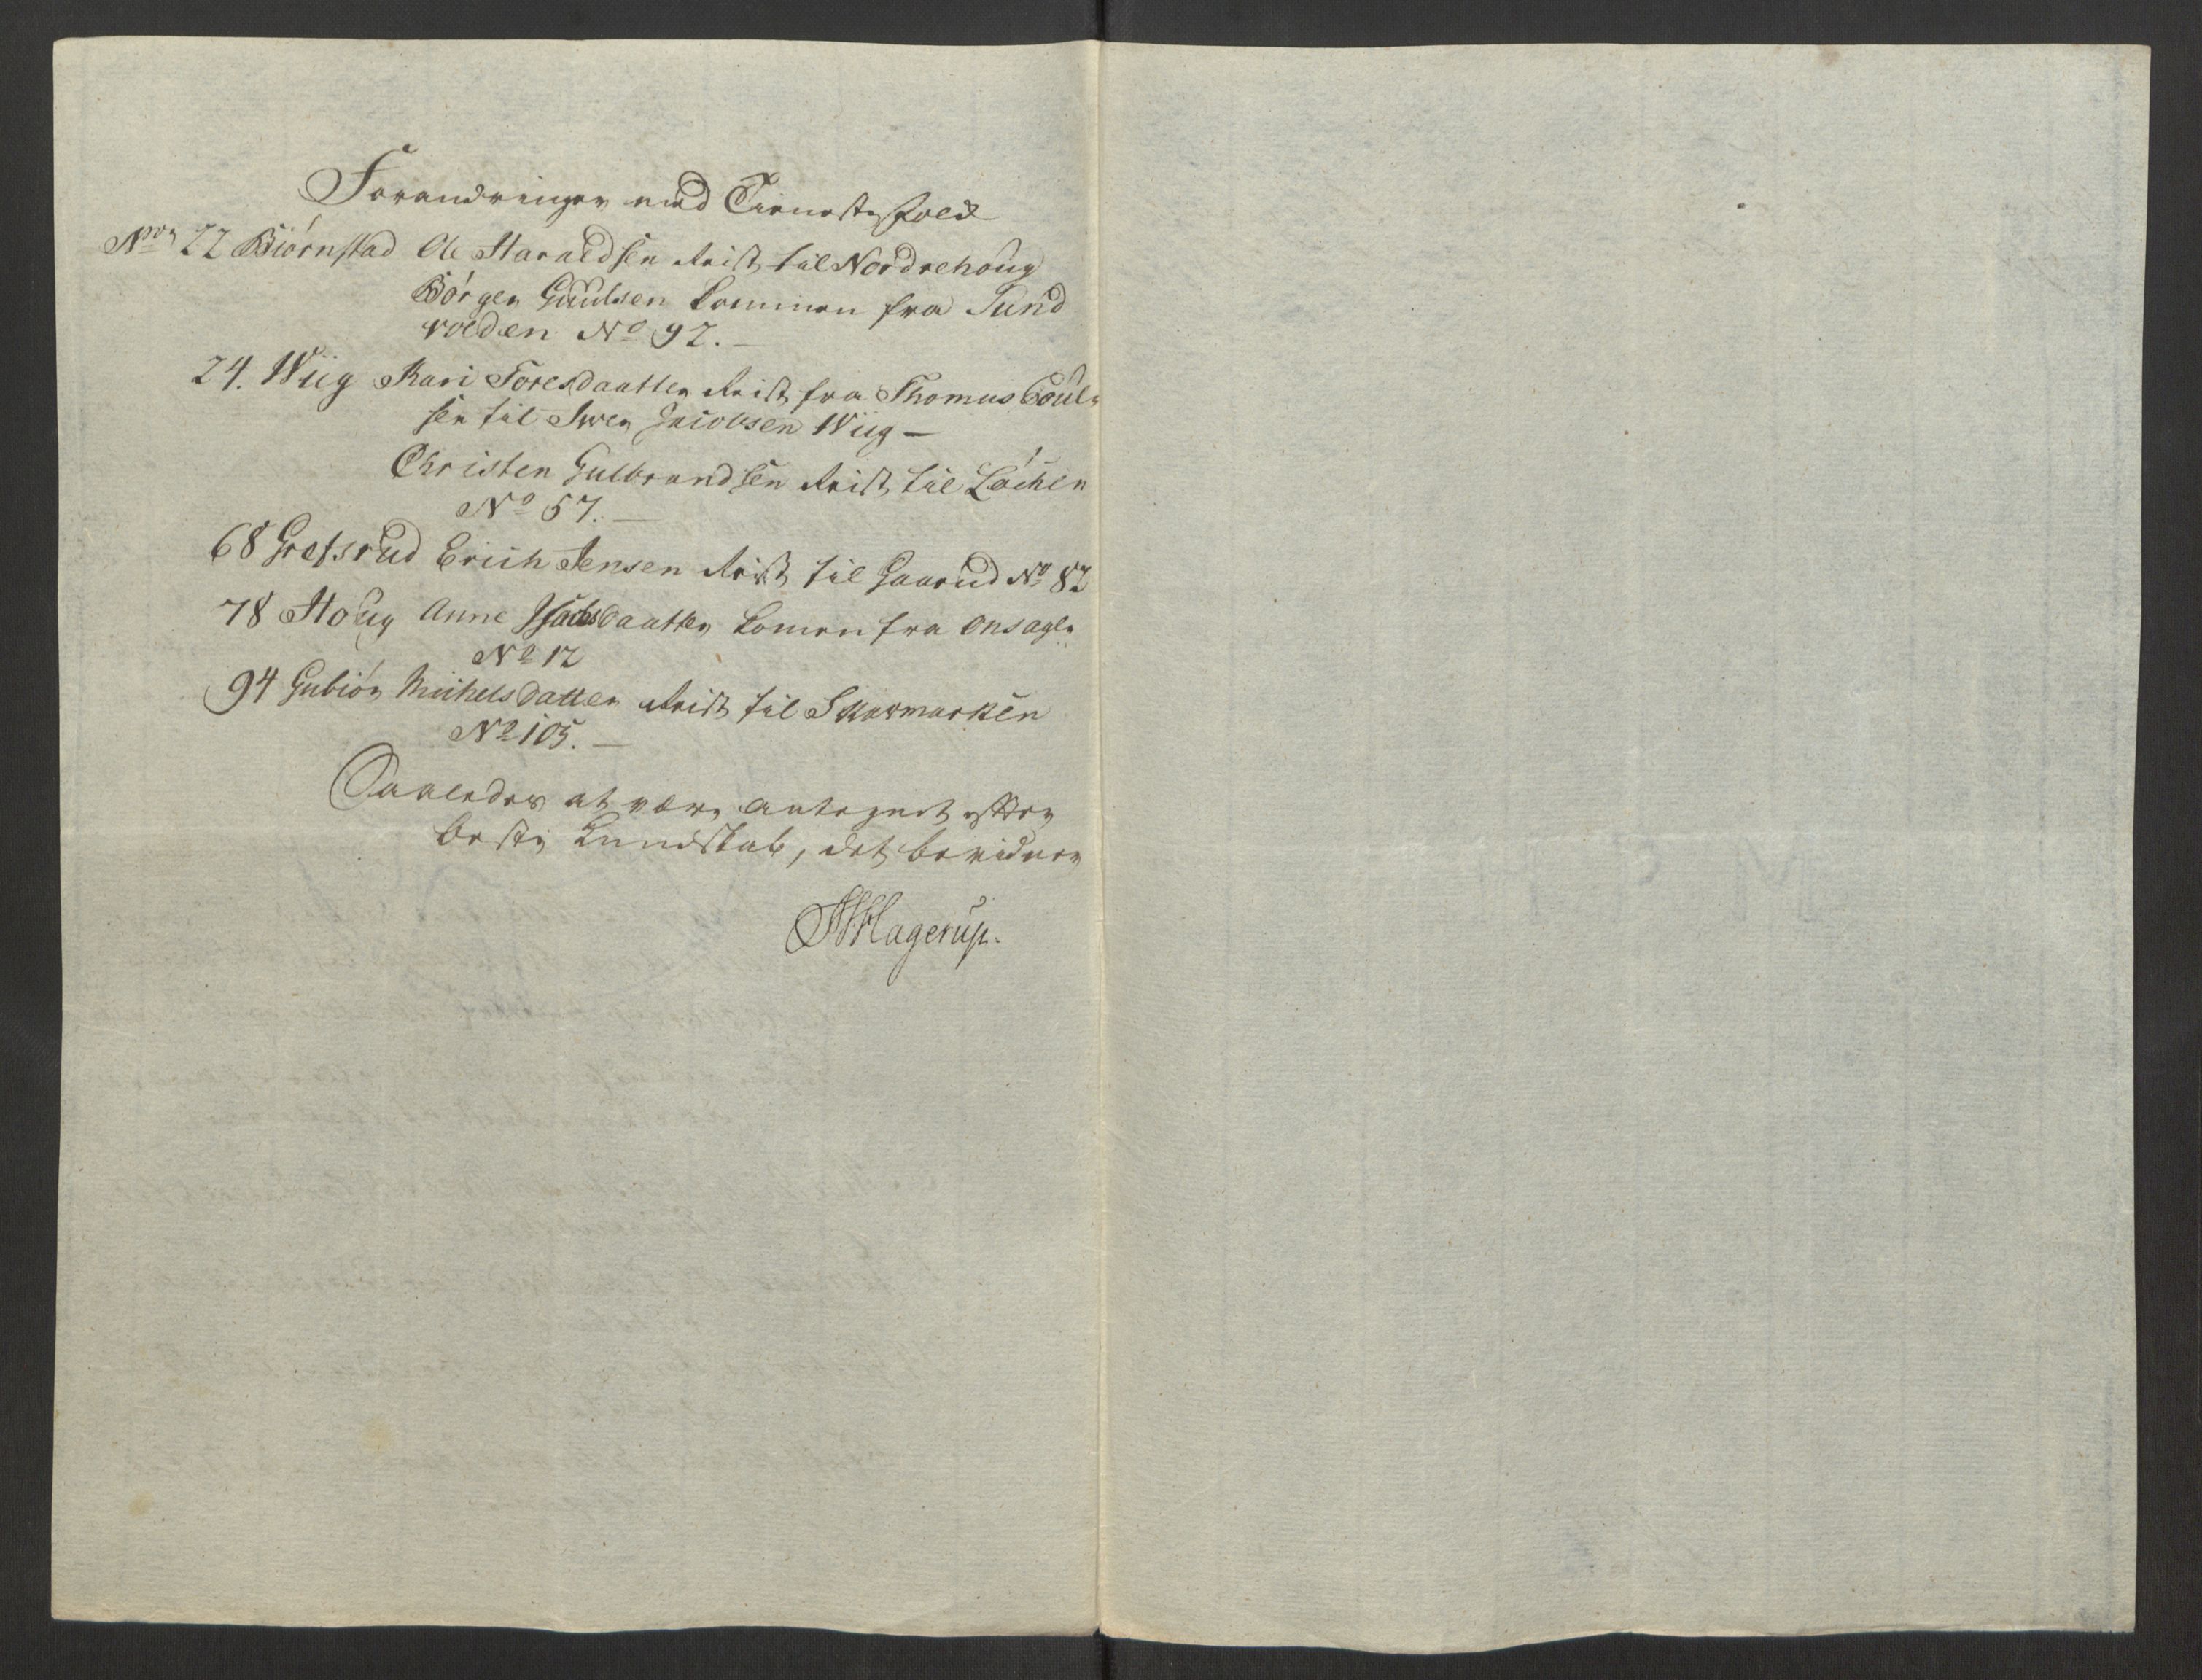 Forandringer med Tieneste folk
No 22 Biørnstad Ole Haraldsen Reist til Nordrehoug
Børger Guulsen kommen fra Sund
volden No 92. –
24. Wiig Kari Toresdaatter Reist fra Thomas Poul-
sen til Iwer Jacobsen Wiig –
Christen Gulbrandsen Reist til Løchen
No 57. –
68 Grefsrud Erich Jensen Reist til Gaarud No 82
78 Houg Anne daatter komen fra Onsager
No 12
94 Gubiør Michelsdatter Reist til Skavmarken
No 105. –
Saaledes at være antegnet efter
beste Kundskab, det bevidner
Hagerup.